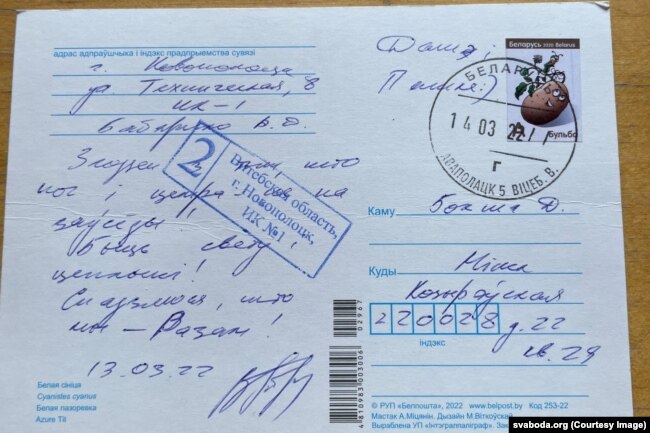 адрас адпраўшчыка і індэкс прадпрыемства сувязі
г. Новополоцк
ул. Техническая, 8
ИК-1
Бабарико В.Д.
і
што
і на
заўсёды!
Быць свету
і цеплыні!
Спадзяюся, што
мы – Разам!
13.03.22
2
Витебская область,
г. Новополоцк,
ИК №1
Беларусь 2020 Belarus
Бульба
БЕЛАРУСЬ
14 03 22
г
НАВАПОЛАЦК 5 ВІЦЕБ. В.
Каму
Д.
Куды
Мінск
Козыраўская
220028
д. 22
індэкс
кв. 29
02967
4810983003006
Белая сініца
Cyanistes cyanus
Белая лазоревка
Azure Tit
© РУП «Белпошта», 2022 www.belpost.by Код 253-22
Мастак А.Міцянін. Дызайн М.Віткоўскай
Выраблена УП «Інтэграліпаліграф». Зак.
svaboda.org (Courtesy Image)